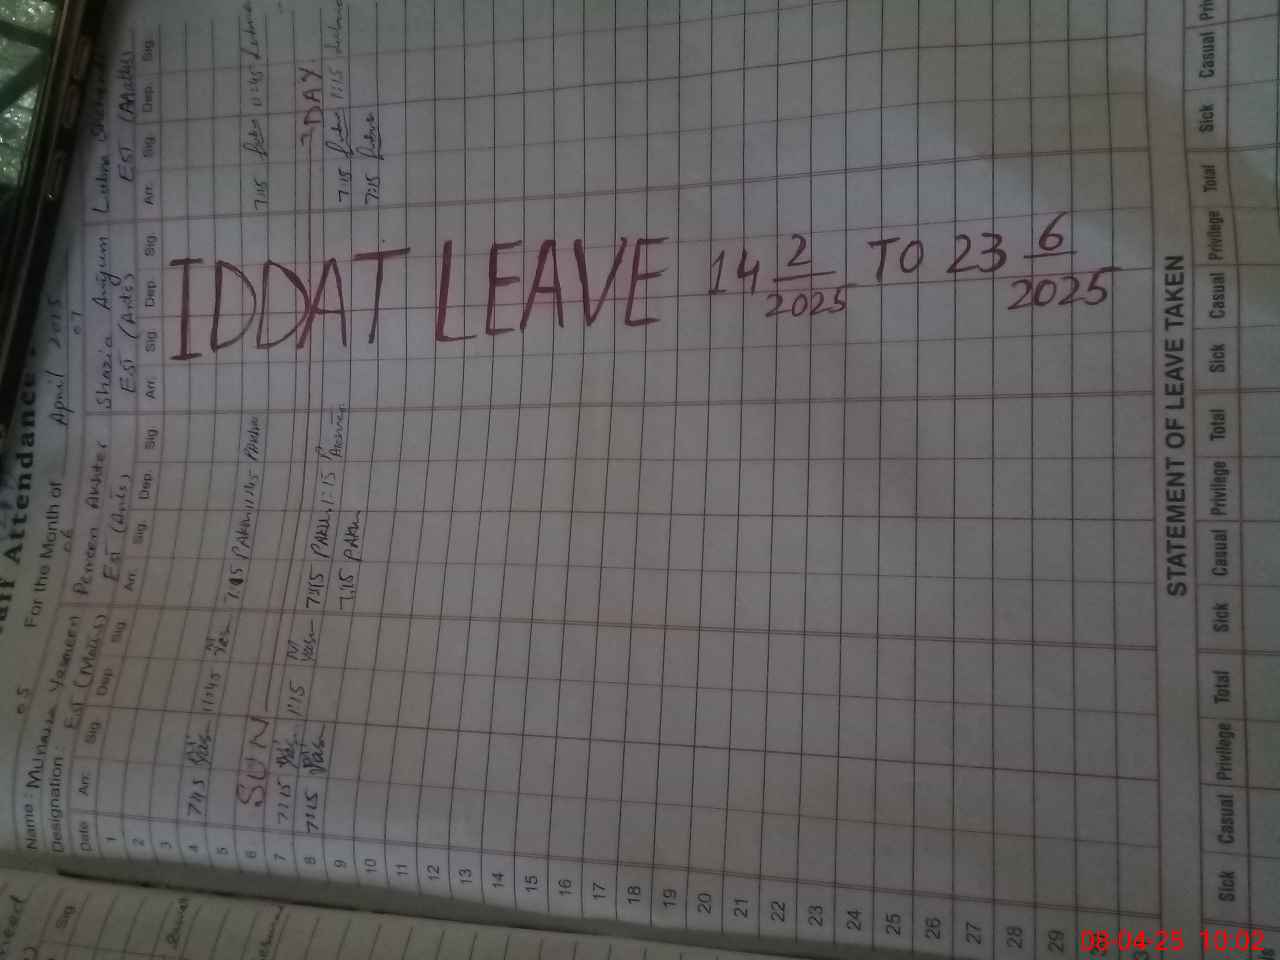 Staff Attendance
05 06 07
For the Month of April 2025
Name: Munauza Yasmeen Perveen Akhter Shazia Anjum Lubna
Designation: Est (Maths) Est (Arts) Est (Arts) Est (Maths)
Date Arr. Sig. Dep. Sig. Arr. Sig. Dep. Sig. Arr. Sig. Dep. Sig. Arr. Sig. Dep. Sig.
1
2
3
4
5 7:45 11:45 7:15 11:45 7:15 11:45
6 SUN DAY
7 7:15 1:15 7:15 1:15 7:15 1:15
8 7:15 7:15 7:15
9
10
11
12
13
14
15
16
17
18
19
20
21
22
23
24
25
26
27
28
29
IDDAT LEAVE 14 2/2025 TO 23 6/2025
STATEMENT OF LEAVE TAKEN
Sick Casual Privilege Total Sick Casual Privilege Total Sick Casual Privilege Total Sick Casual
Sig.
08-04-25 10:02